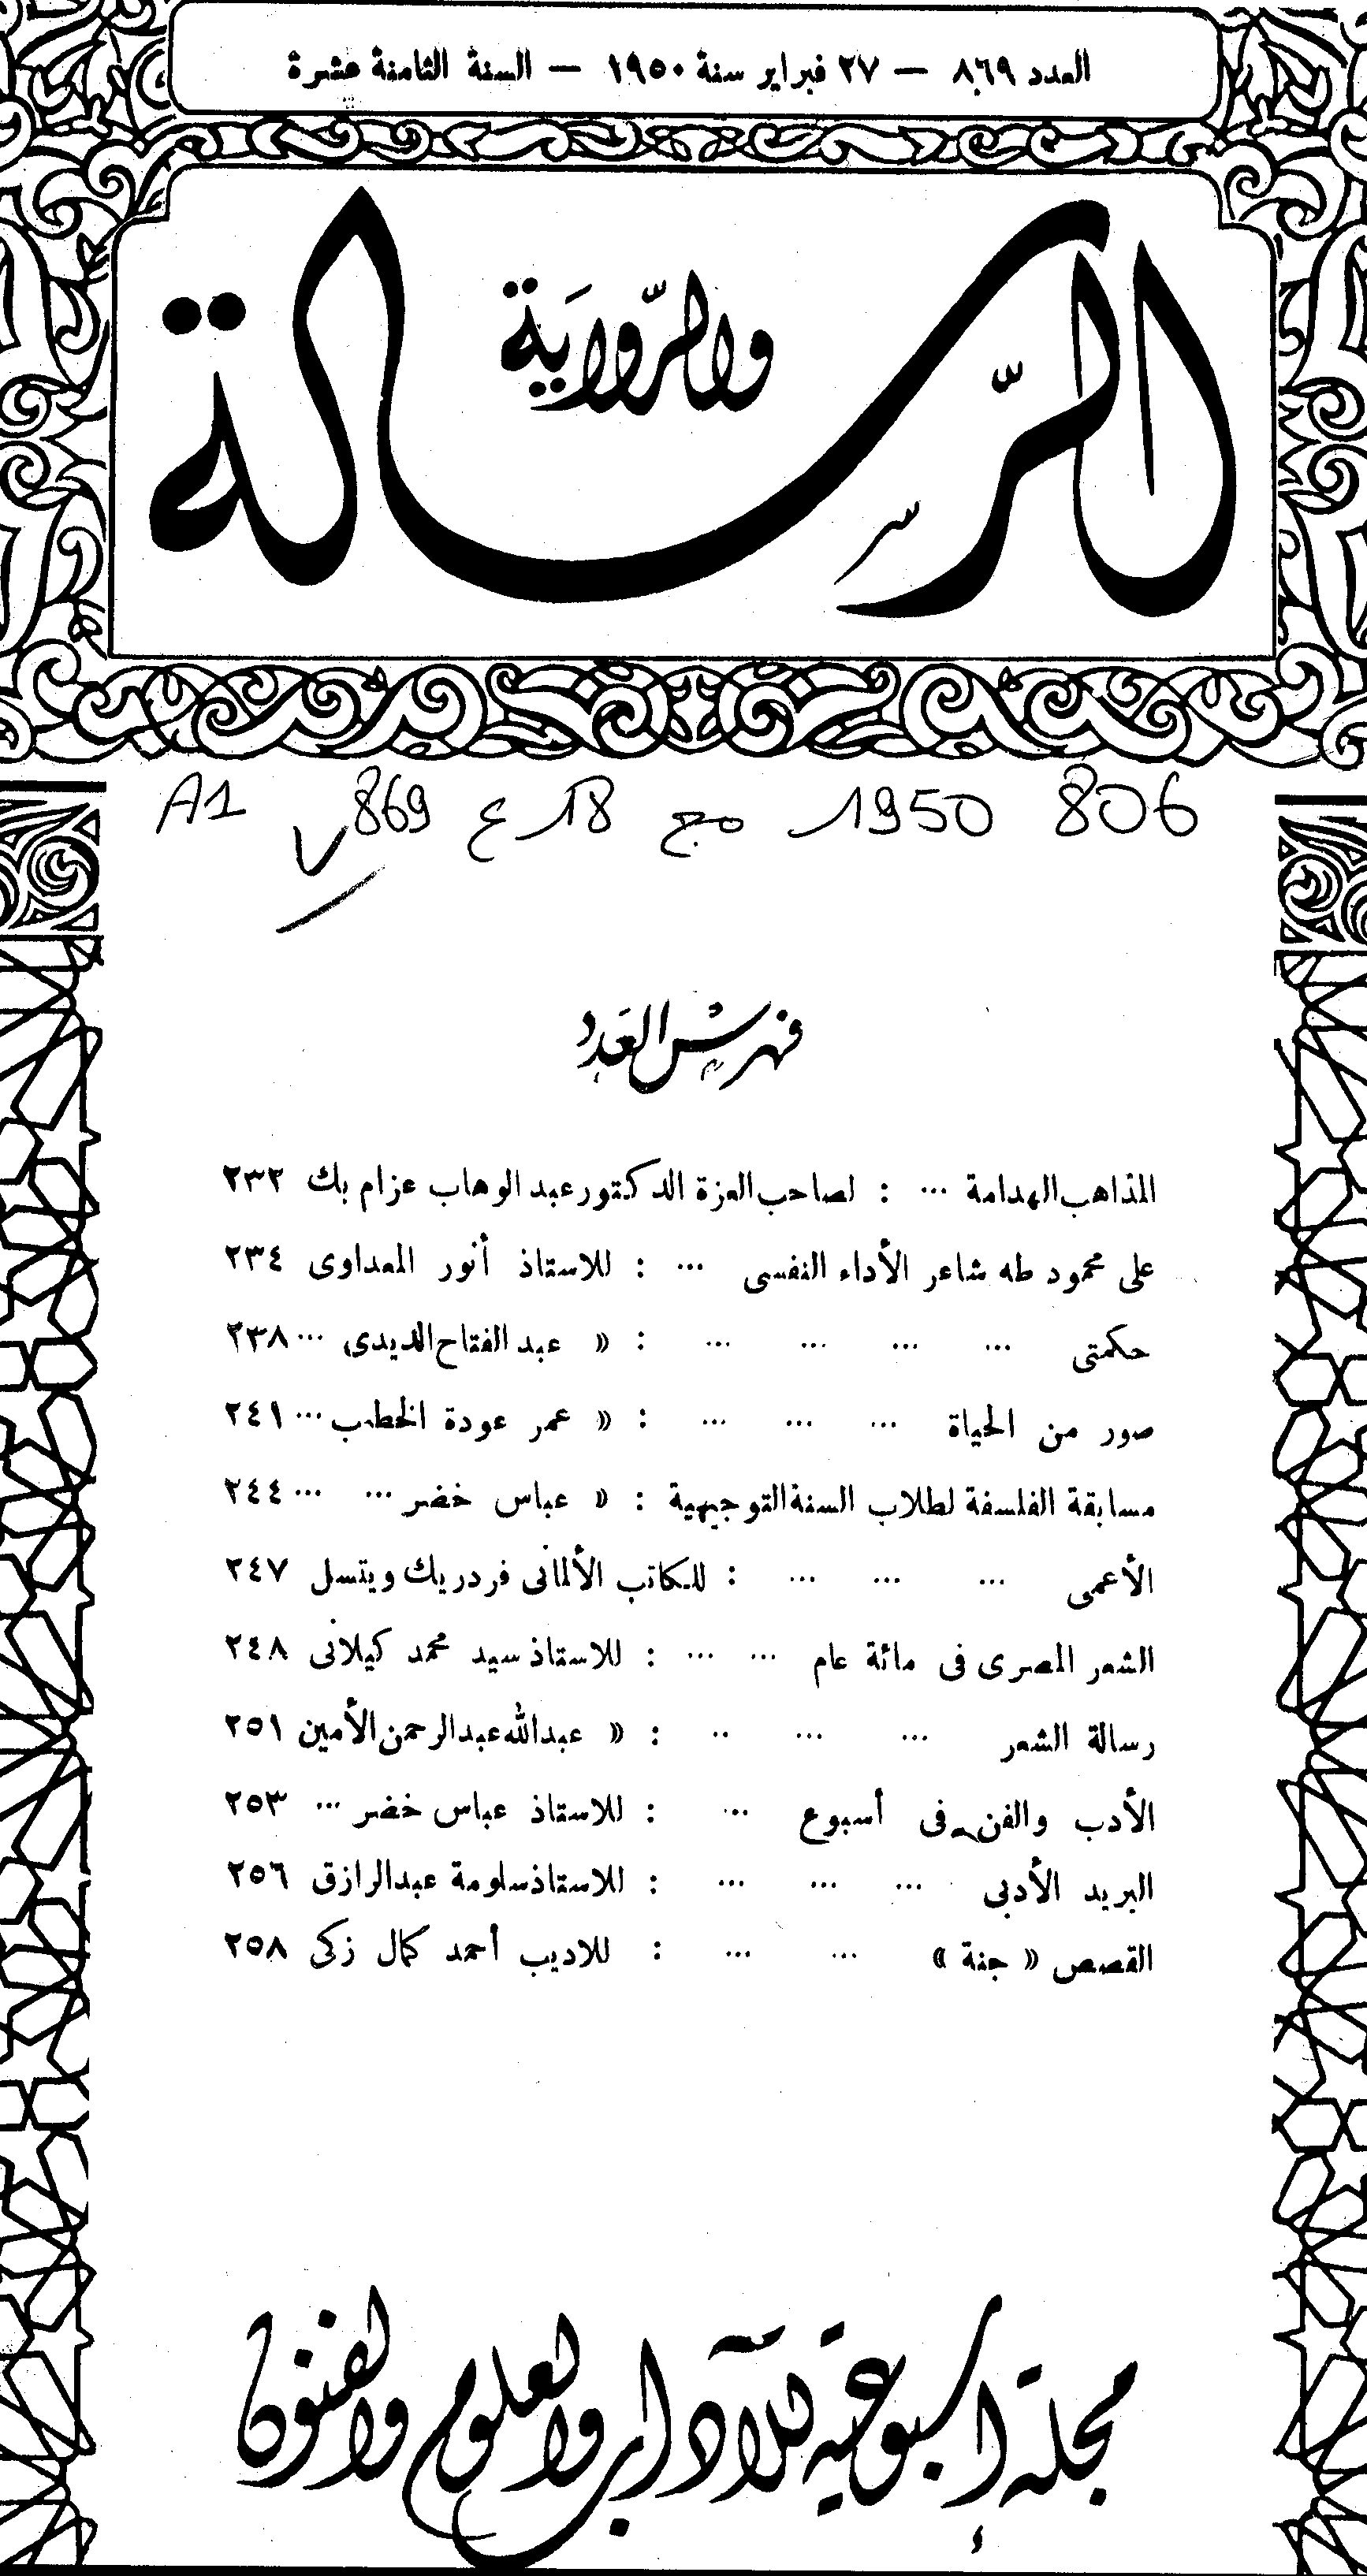 العدد ٨٦٩ — ٢٧ فبراير سنة ١٩٥٠ — السنة الثامنة عشرة
الرسالة
والرّواية
806 1950 مج 18 ع 869 A1
فهرس العدد
المذاهب الهدامة ... : لصاحب العزة الدكتور عبد الوهاب عزام بك ٢٣٢
على محمود طه شاعر الأداء النفسى ... : للاستاذ أنور المعداوى ٢٣٤
حكمتى ... ... ... ... : » عبد الفتاح الديدى ... ٢٣٨
صور من الحياة ... ... ... : » عمر عودة الخطيب ... ٢٤١
مسابقة الفلسفة لطلاب السنة التوجيهية : » عباس خضر ... ... ٢٤٤
الأعمى ... ... ... : للكاتب الألمانى فردريك ويتسل ٢٤٧
الشعر المصرى فى مائة عام ... ... : للاستاذ سيد محمد كيلانى ٢٤٨
رسالة الشعر ... ... .. : » عبد الله عبد الرحمن الأمين ٢٥١
الأدب والفن فى أسبوع ... : للاستاذ عباس خضر ... ٢٥٣
البريد الأدبى ... ... ... : للاستاذ سلومة عبد الرازق ٢٥٦
القصص « جنة » ... ... : للاديب أحمد كمال زكى ٢٥٨
مجلة إسبوعية للآداب والعلوم والفنون